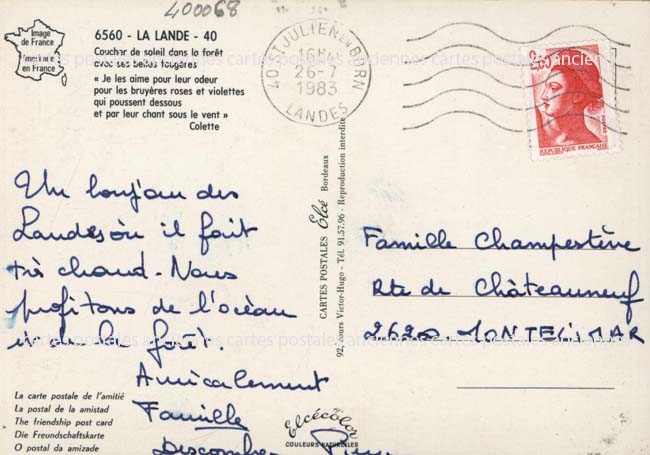 400068
Image
de France
Imprimerie
en France
6560 - LA LANDE - 40
Coucher de soleil dans la forêt
avec ses belles fougères
« Je les aime pour leur odeur
pour les bruyères roses et violettes
qui poussent dessous
et par leur chant sous le vent »
Colette
40 ST JULIEN EN BORN
26-7
1983
LANDES
2,00
REPUBLIQUE FRANÇAISE
cartes postales anciennes
Un bonjour des
Landes où il fait
très chaud - Nous
profitons de l'océan
et de la forêt.
Amicalement
Famille
CARTES POSTALES Elcé Bordeaux
92, cours Victor-Hugo - Tél. 91.57.96 - Reproduction interdite
Famille Champestève
Rte de Châteauneuf
26200 MONTELIMAR
La carte postale de l'amitié
La postal de la amistad
The friendship post card
Die Freundschaftskarte
O postal da amizade
Elcécolor
COULEURS NATURELLES